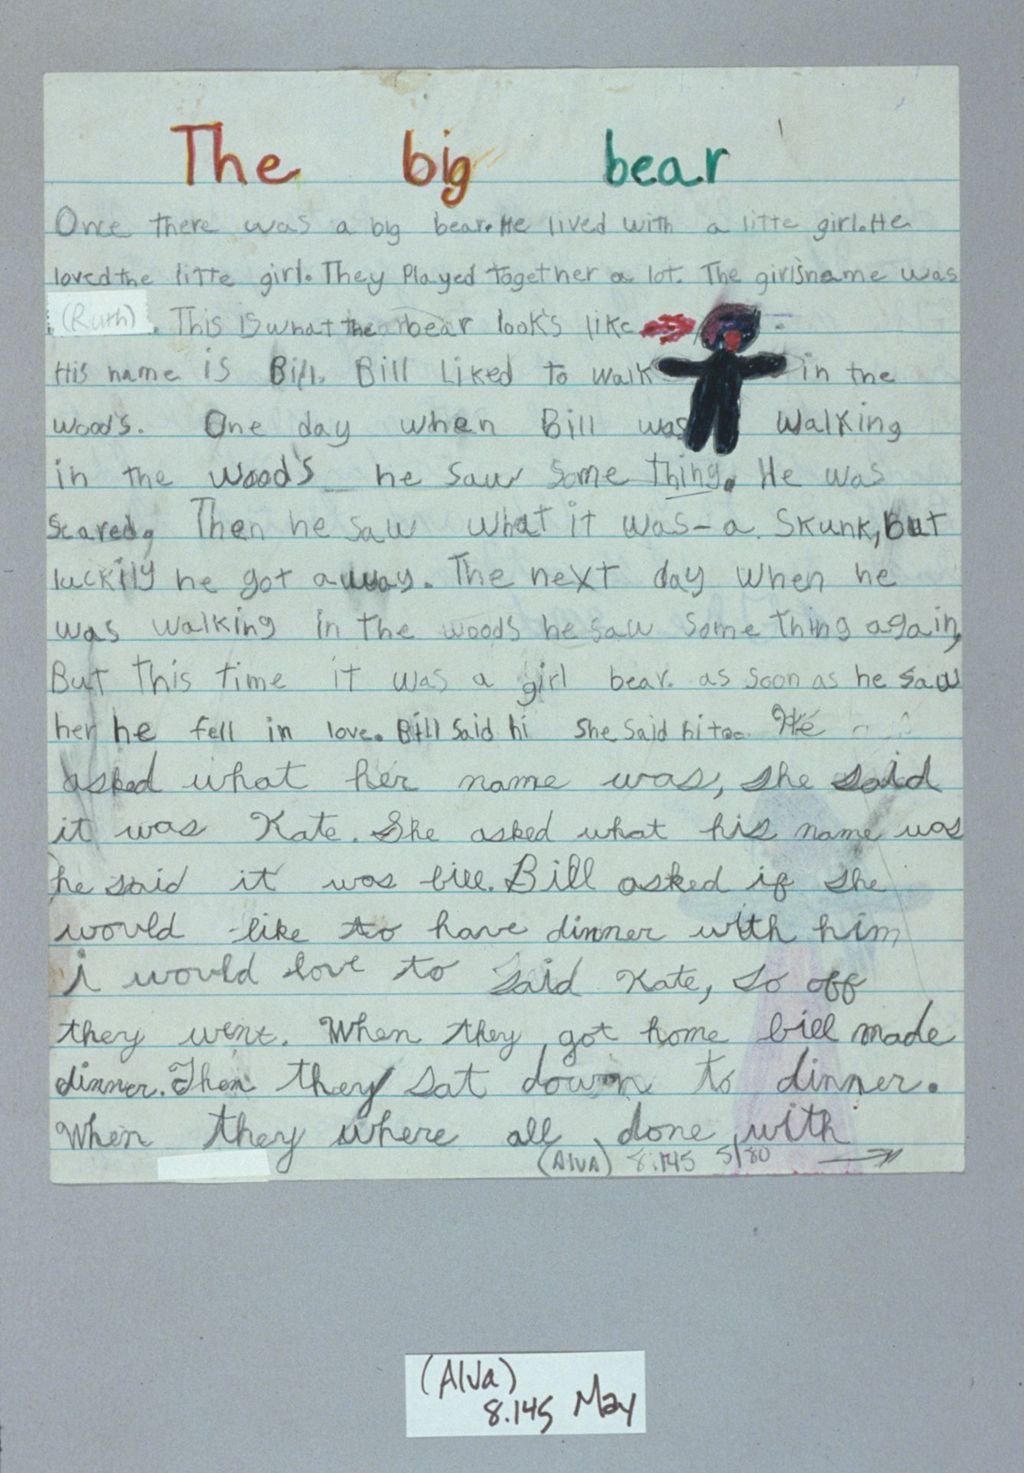 The big bear
Once there was a big bear. He lived with a litte girl. He
loved the litte girl. They Played together a lot. The girlsname was
(Ruth). This is what the bear look's like
His name is Bill. Bill Liked to walk in the
wood's. One day when Bill was walking
in the wood's he saw some thing. He was
scared. Then he saw what it was - a skunk, but
luckily he got away. The next day when he
was walking in the woods he saw some thing again,
But this time it was a girl bear. as soon as he saw
her he fell in love. Bill said hi she said hi too. He
asked what her name was, she said
it was Kate. She asked what his name was
he said it was bill. Bill asked if she
would like to have dinner with him
i would love to said Kate, so off
they went. When they got home bill made
dinner. Then they sat down to dinner.
When they where all done with
(Alva) 8.145 5/80
(Alva)
8.145 May